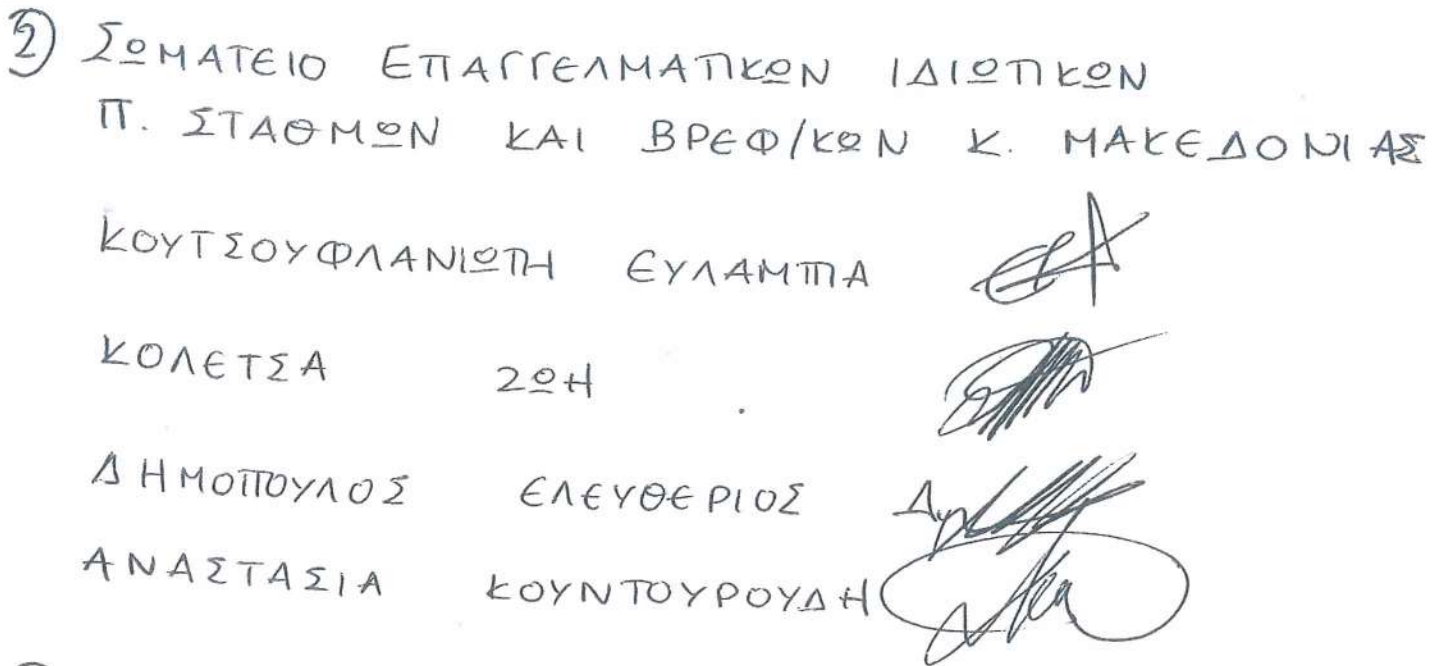 2) ΣΩΜΑΤΕΙΟ ΕΠΑΓΓΕΛΜΑΤΙΚΩΝ ΙΔΙΩΤΙΚΩΝ
Π. ΣΤΑΘΜΩΝ ΚΑΙ ΒΡΕΦ/ΚΩΝ Κ. ΜΑΚΕΔΟΝΙΑΣ
ΚΟΥΤΣΟΥΦΛΑΝΙΩΤΗ ΕΥΛΑΜΠΙΑ
ΚΟΛΕΤΣΑ ΖΩΗ
ΔΗΜΟΠΟΥΛΟΣ ΕΛΕΥΘΕΡΙΟΣ
ΑΝΑΣΤΑΣΙΑ ΚΟΥΝΤΟΥΡΟΥΔΗ